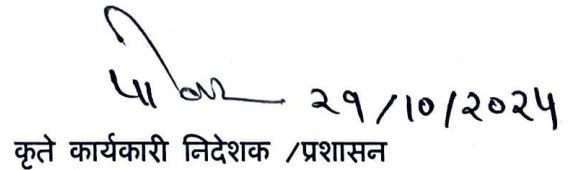 २१/१०/२०२५
कृते कार्यकारी निदेशक /प्रशासन